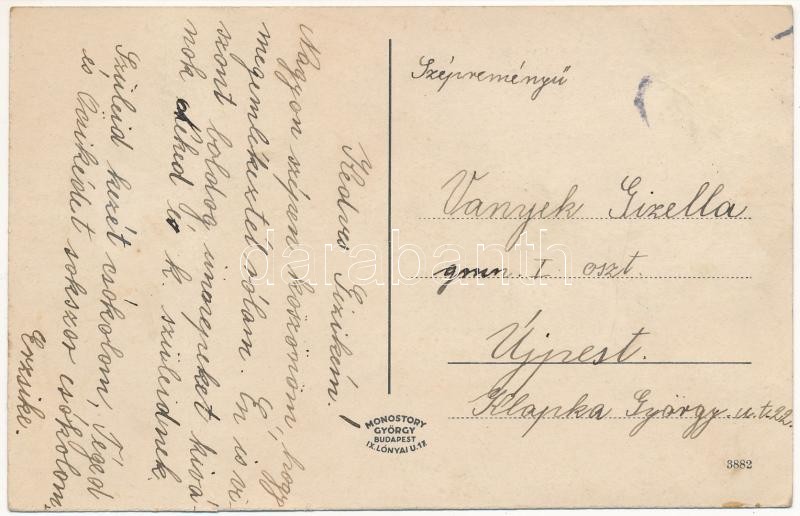 Kedves Gizikém!
Nagyon szépen köszönöm, hogy
megemlékeztél rólam. Én is vi-
szont boldog ünnepeket kivá-
nok Neked és k. szüleidnek.
Szüleid kezét csókolom, Téged
és Öcsikédet sokszor csókolom.
Erzsike.
Szépreményű
Vanyek Gizella
gmn. I oszt.
Újpest.
Klapka György u. 22.
MONOSTORY
GYÖRGY
BUDAPEST
IX. LÓNYAI U. 17
3882
darabanth